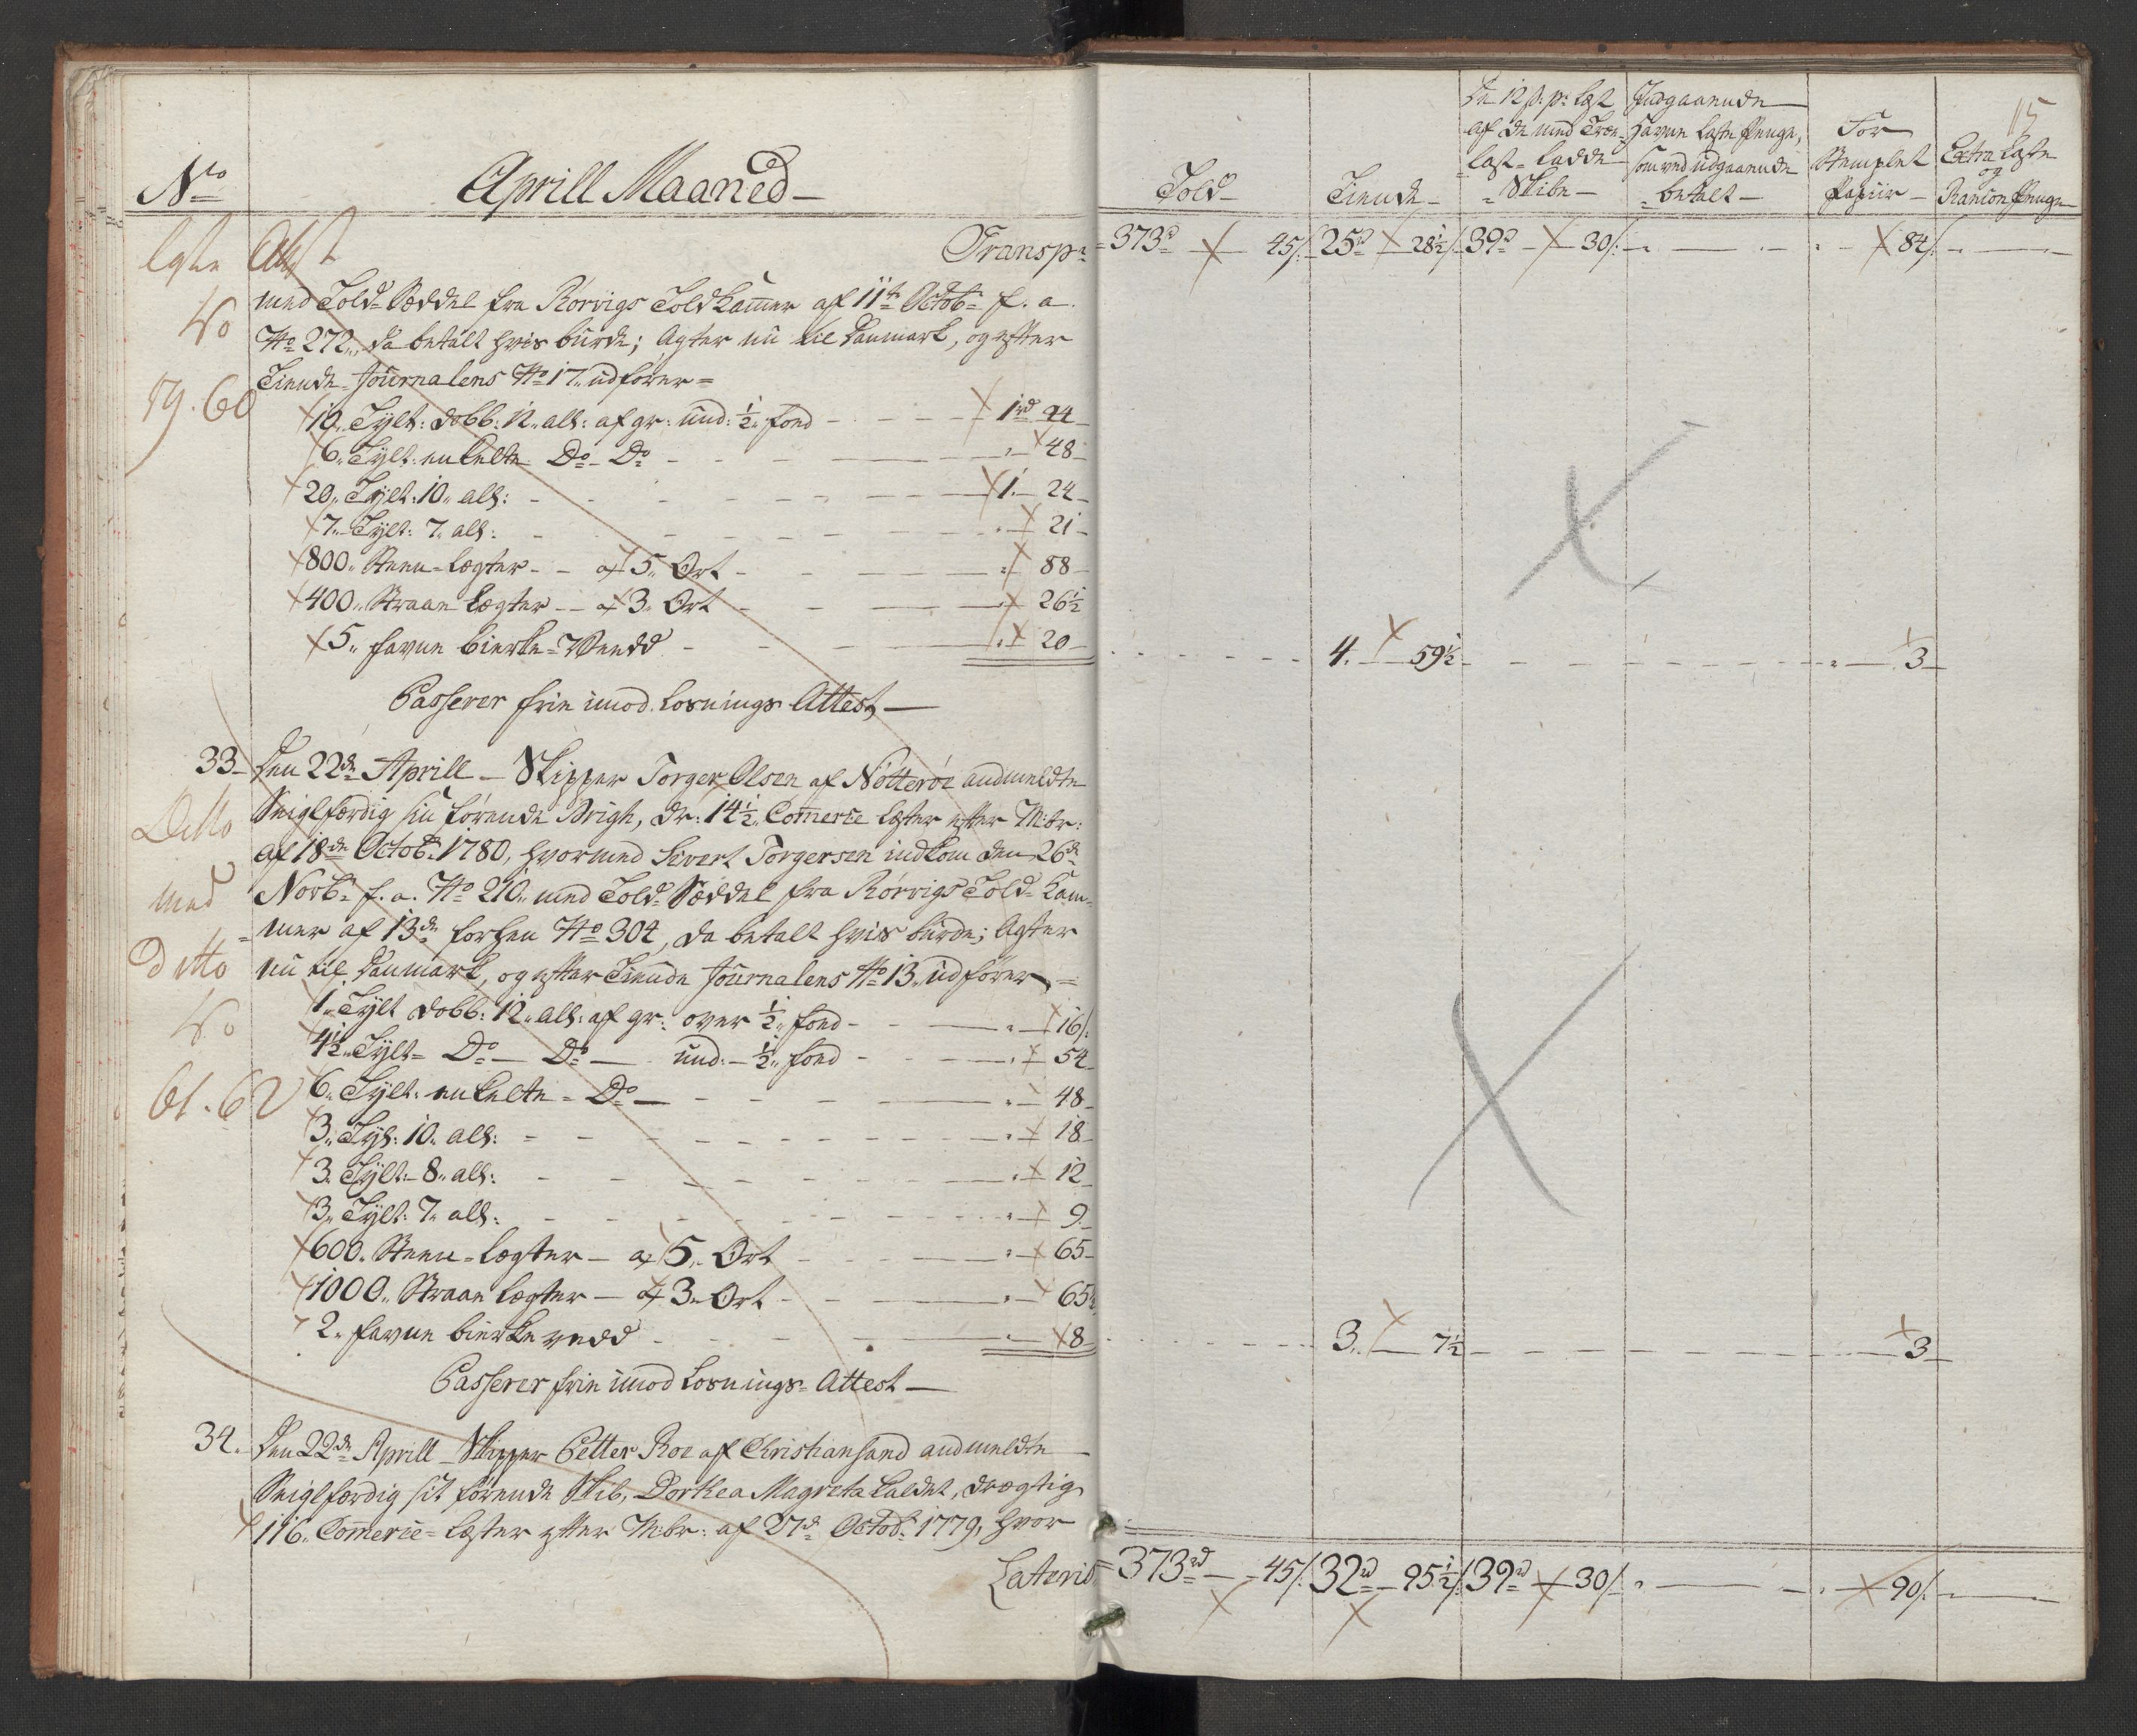 No
Aprill Maaned
Told
Tiende
De 12 s: pr: læst af de med Træ-last-ladde Skibe
Indgaaende Havne Laste Penge, som ved udgaaende betalt
For Stemplet Papiir
Extra Laste og Rancon Penge
15
Transp: 373rd 45s: 25rd 28½s: 39rd 30s: 84s:
med Told-Seddel fra Rörvigs Toldkammer af 11te Octobr: f. a.
No 272, da betalt hvis burde; Agter nu til Danmark, og efter
Tiende-Journalens No 17 udfører
No
59. 60
10 Tylt: dobb: 12 all: af gr: und: ½ fod 1rd 24
6 Tylt: enkelte Do Do 48
20 Tylt: 10 all: 1 24
7 Tylt: 7 all: 21
800 Steen-Lægter a 5 Ort 88
400 Straae Lægter a 3 Ort 26½
5 favne bierke-Veedd 20
4. 59½ 3
Passerer frie imod Losnings Attest
33 Den 22de Aprill Skipper Torger Olsen af Nötteröe andmeldte
Ditto
Seiglfærdig sin førende Brigh, dr: 14½ Comerce Læster efter M:br:
af 18de Octobr: 1780, hvormed Sivert Torgersen indkom den 26de
med
Novbr: f. a. No 210 med Told-Seddel fra Rörvigs Told-Kam-
mer af 13de forhen No 304, da betalt hvis burde; Agter
ditto
nu til Danmark, og efter Tiende Journalens No 13 udfører
1 Tylt dobb: 12 all: af gr: over ½ fod 16s:
No
4½ Tylt Do Do und: ½ fod 54
61. 62
6 Tylt: enkelte Do 48
3 Tyl: 10 all: 18
3 Tylt: 8 all: 12
3 Tylt: 7 all: 9
600 Steen-Lægter a 5 Ort 65
1000 Straae Lægter a 3 Ort 65½
2 favne bierke vedd 8
3. 7½ 3
Passerer frie imod Losnings-Attest
34. Den 22de Aprill Skipper Petter Roe af Christiansand andmeldte
Seiglfærdig sit førende Skib, Dorthea Magreta kaldet, drægtig
116 Comerce-Læster efter M:br: af 27de Octob: 1779, hvor
Lateris 373rd 45s: 32rd 95½s: 39rd 30s: 90s: